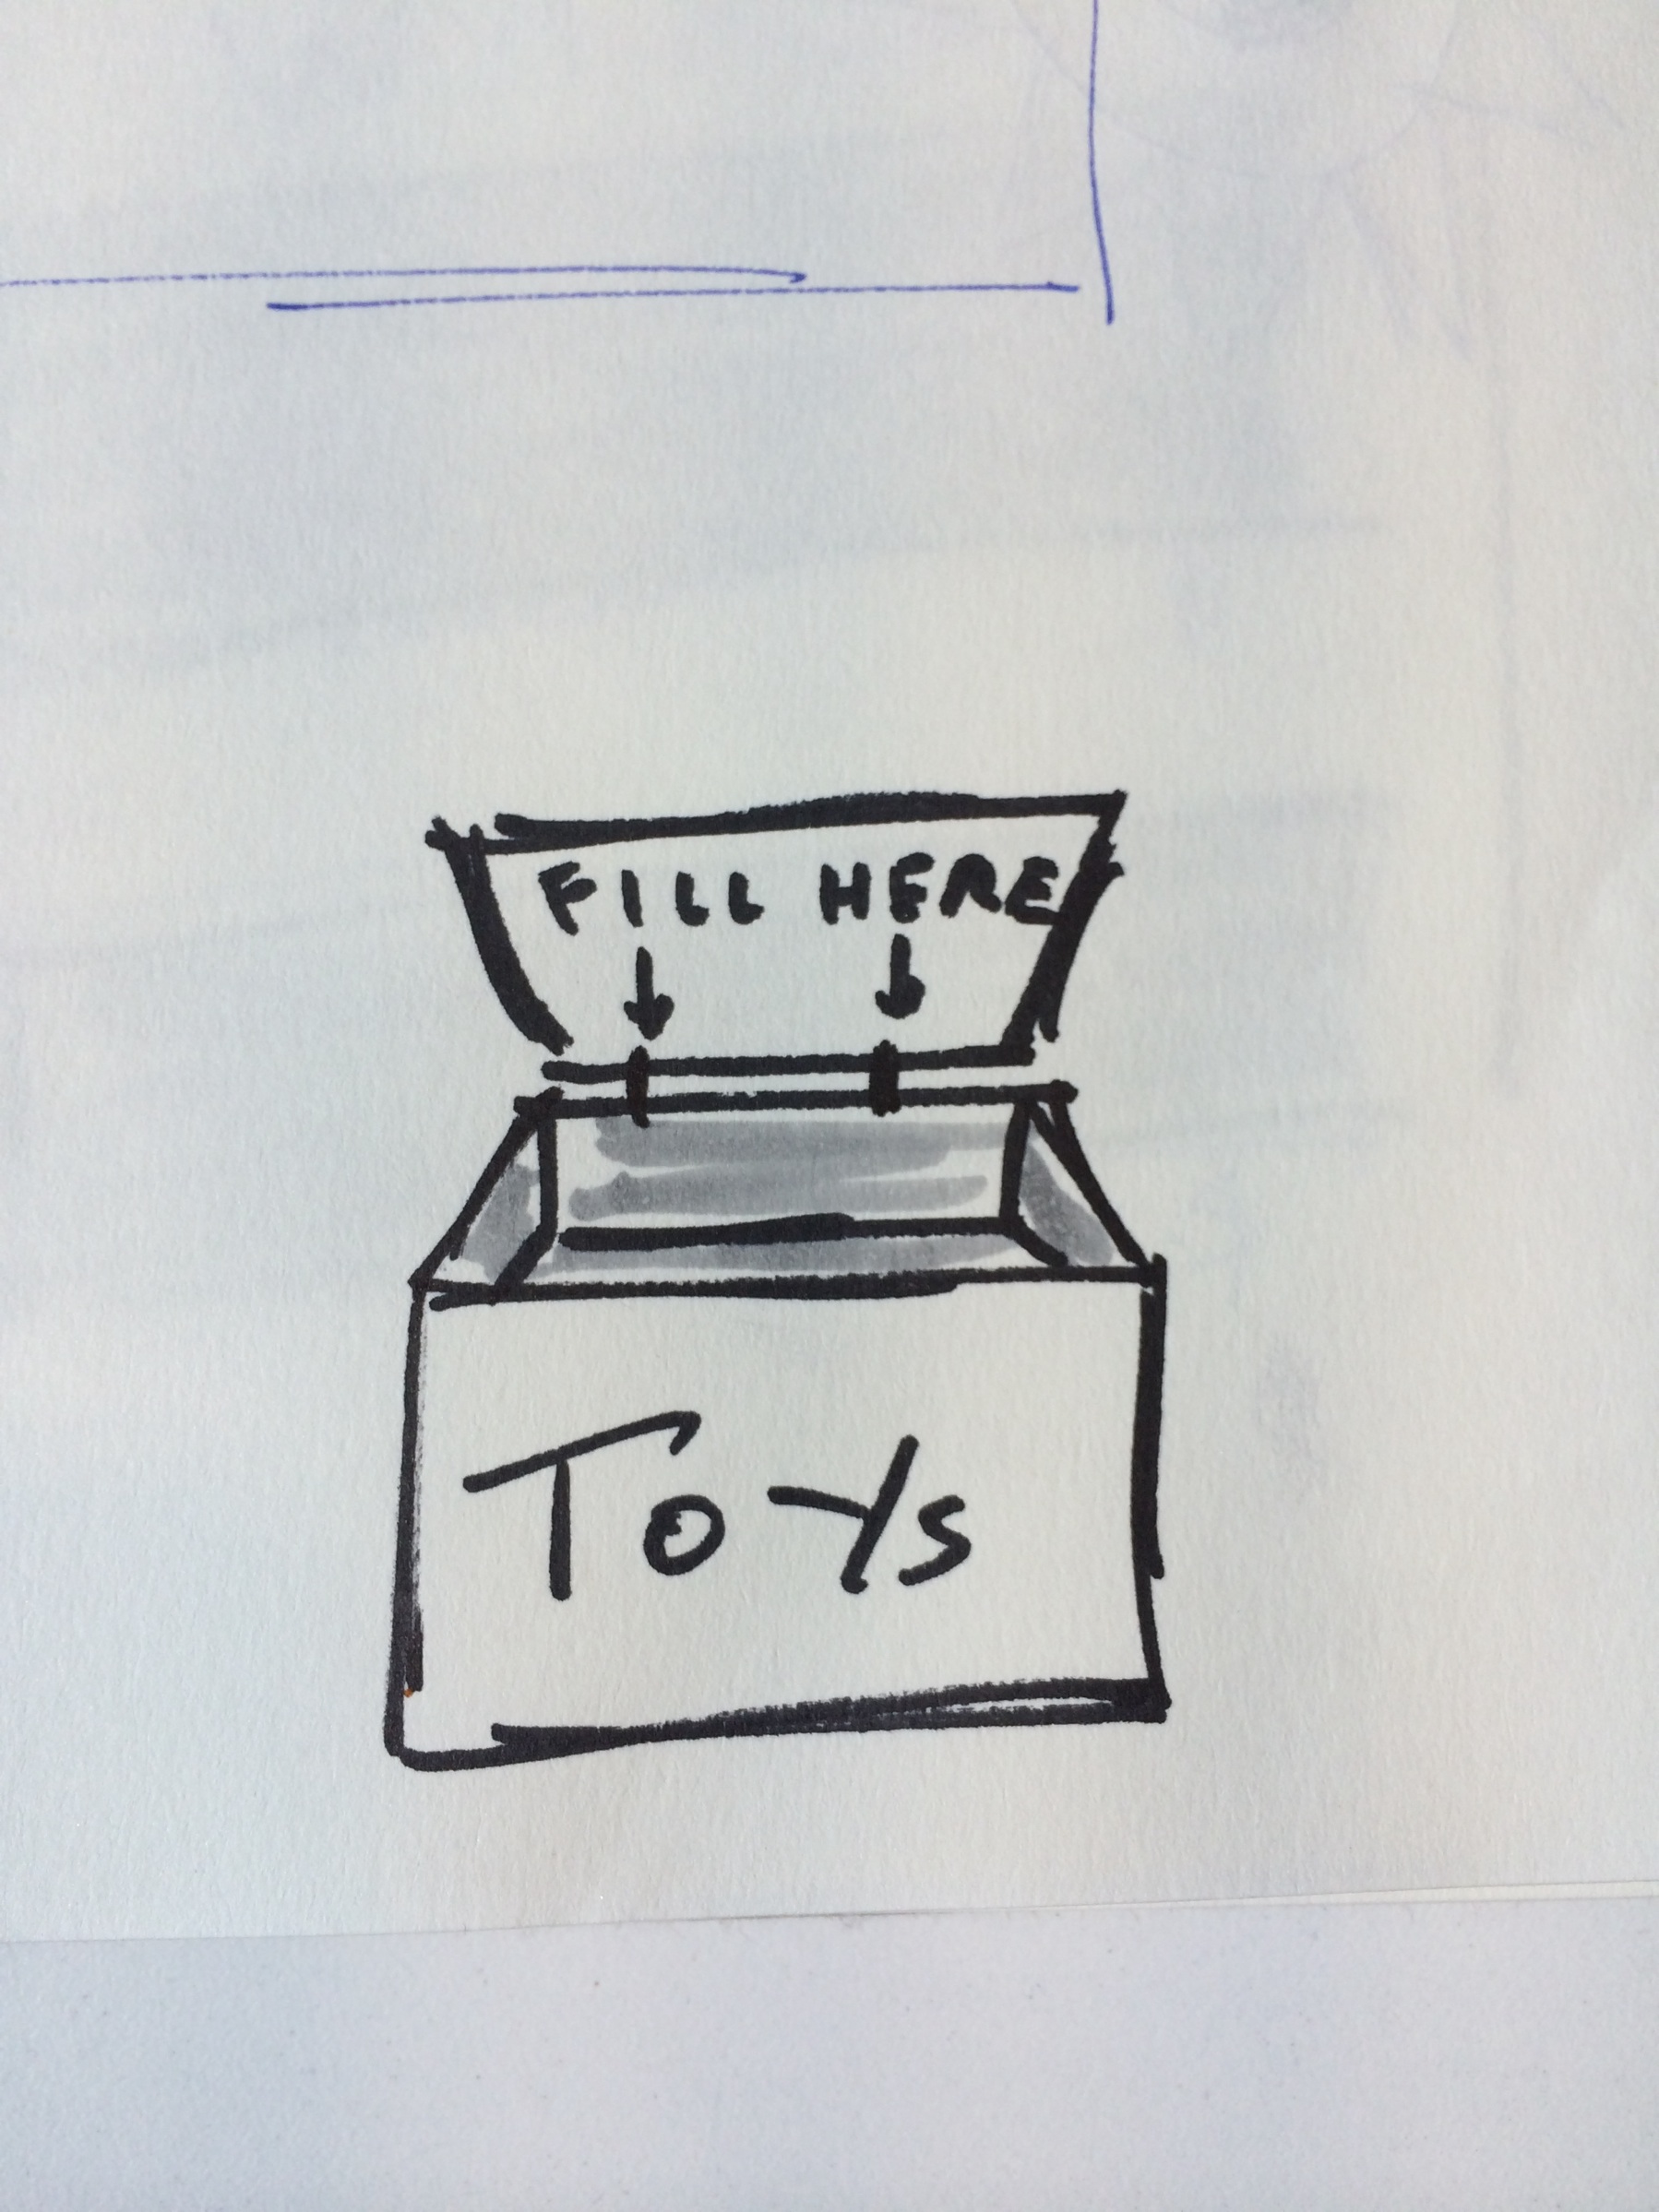 FILL HERE
Toys